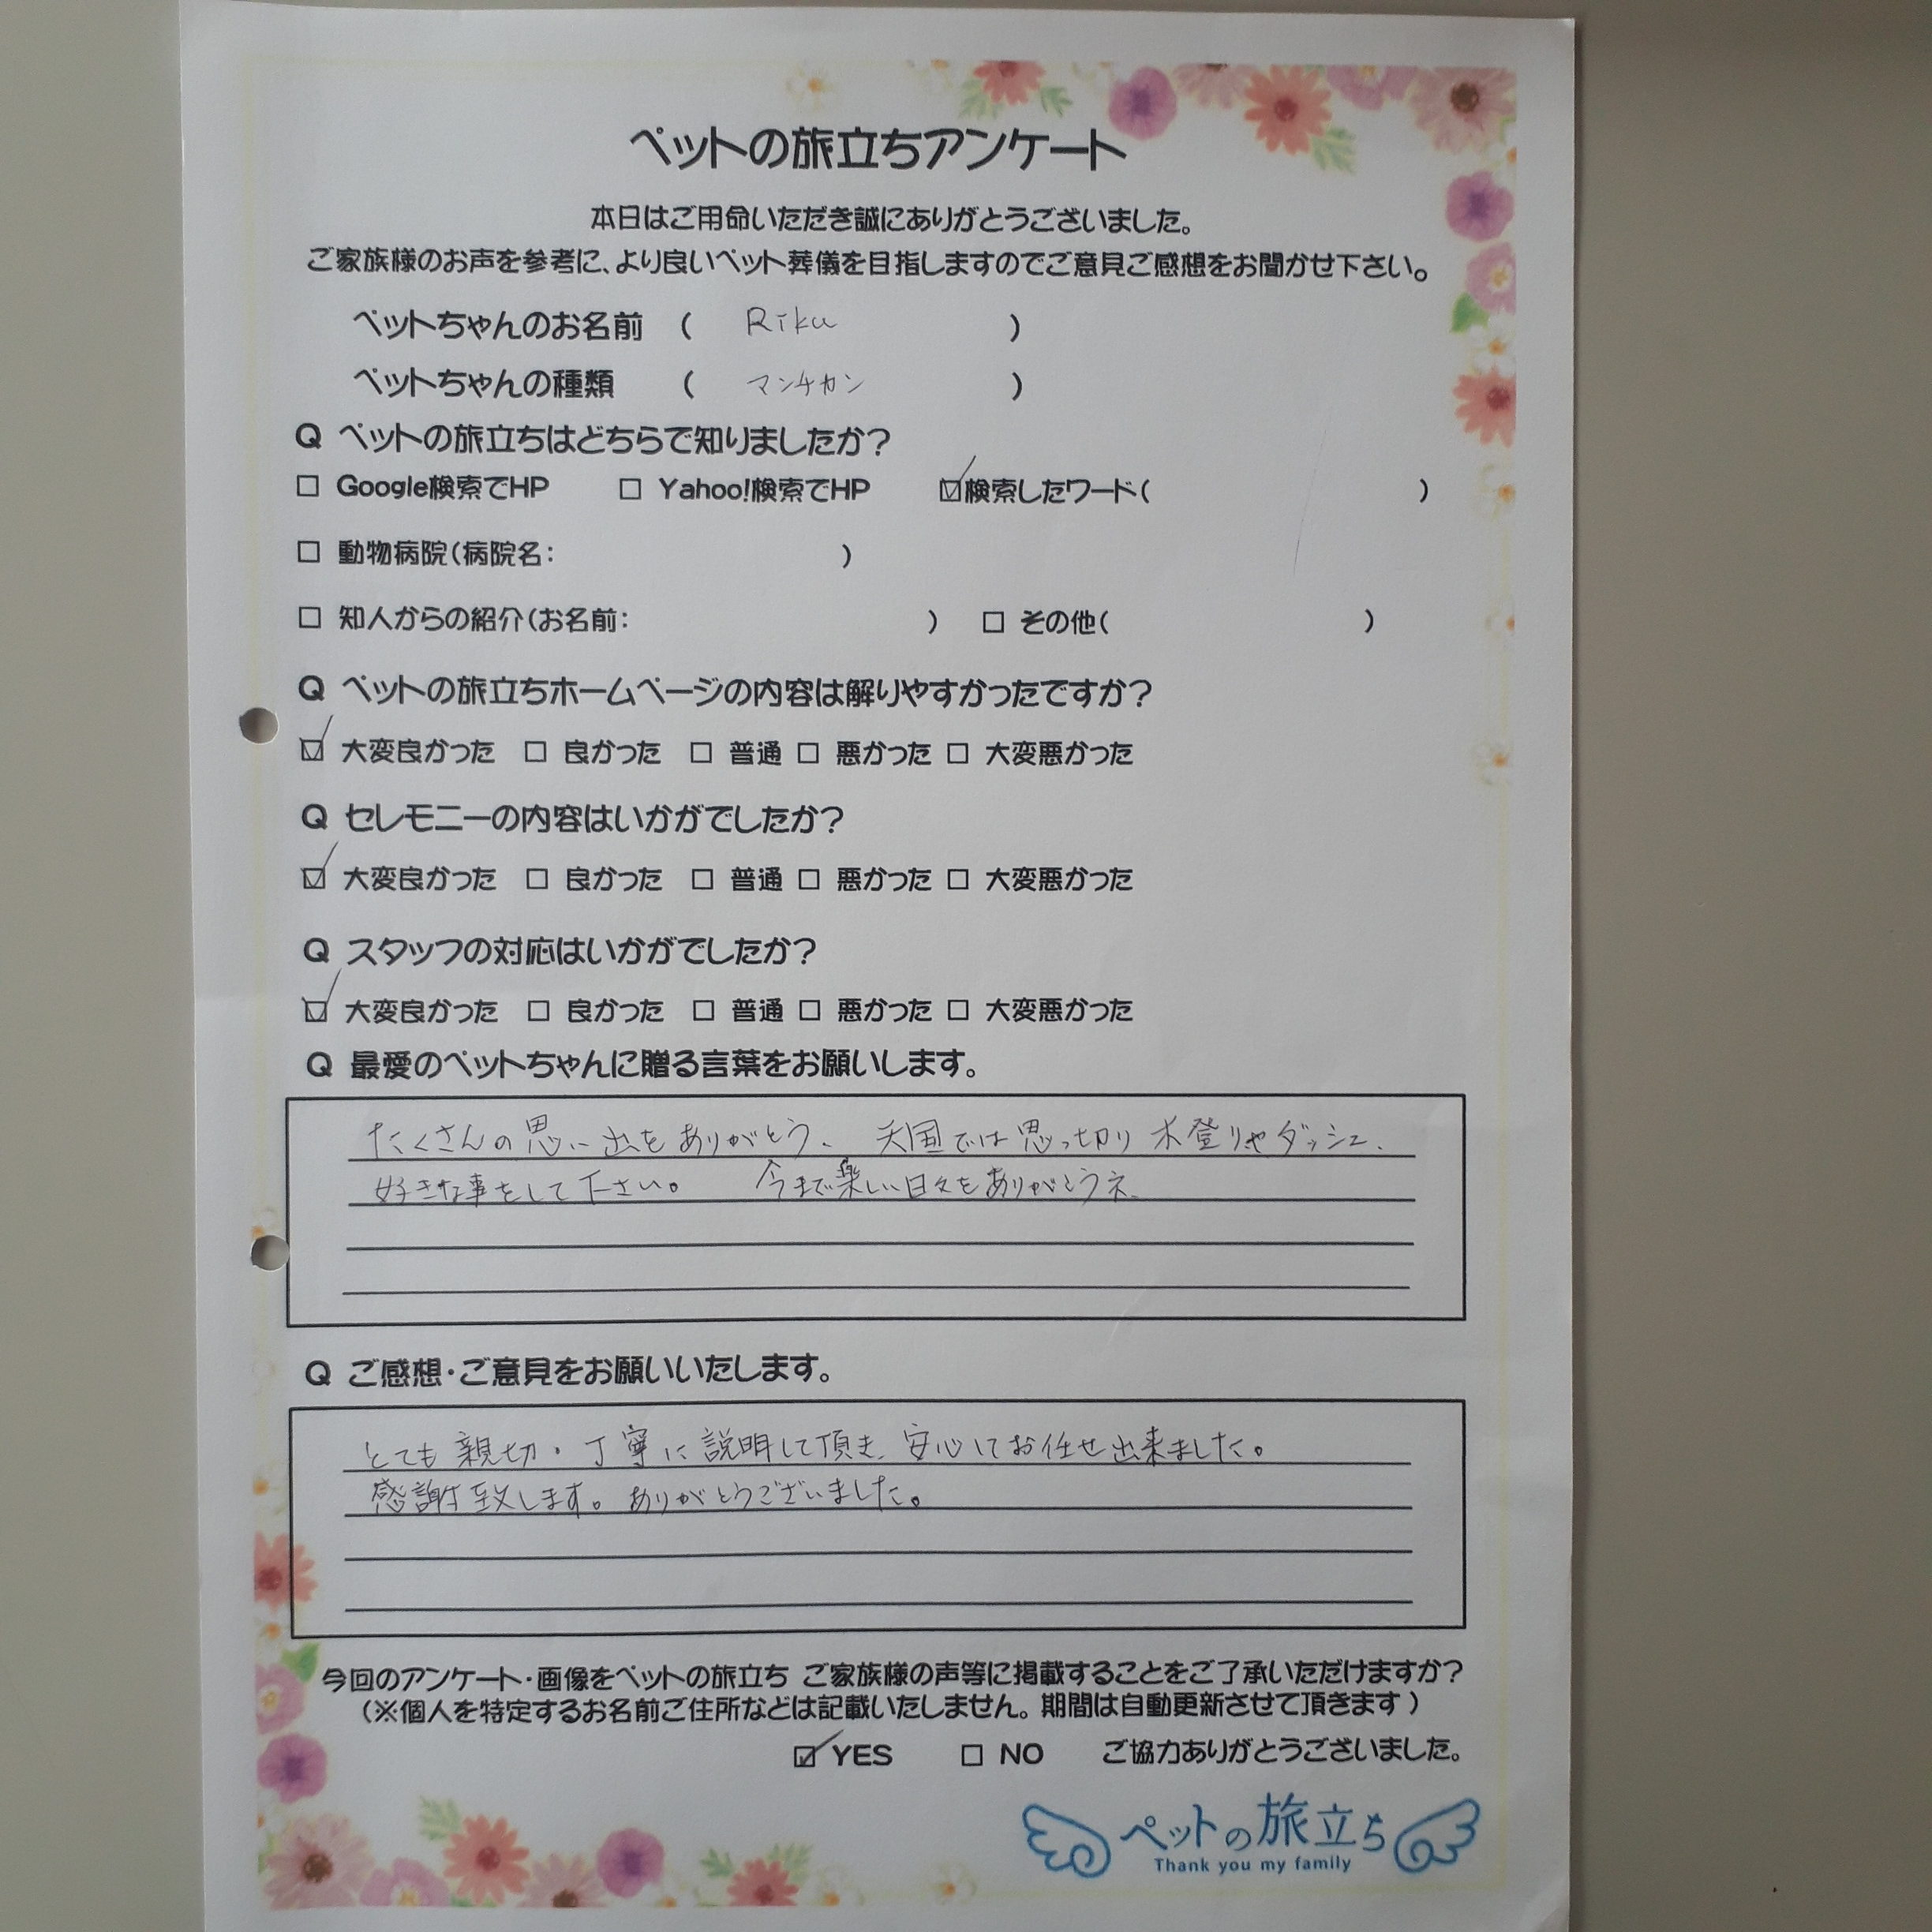 ペットの旅立ちアンケート
本日はご用命いただき誠にありがとうございました。
ご家族様のお声を参考に、より良いペット葬儀を目指しますのでご意見ご感想をお聞かせ下さい。
ペットちゃんのお名前 ( Riku )
ペットちゃんの種類 ( マンチカン )
Q ペットの旅立ちはどちらで知りましたか？
□ Google検索でHP □ Yahoo!検索でHP ☑検索したワード( )
□ 動物病院(病院名: )
□ 知人からの紹介(お名前: ) □ その他( )
Q ペットの旅立ちホームページの内容は解りやすかったですか？
☑ 大変良かった □ 良かった □ 普通 □ 悪かった □ 大変悪かった
Q セレモニーの内容はいかがでしたか？
☑ 大変良かった □ 良かった □ 普通 □ 悪かった □ 大変悪かった
Q スタッフの対応はいかがでしたか？
☑ 大変良かった □ 良かった □ 普通 □ 悪かった □ 大変悪かった
Q 最愛のペットちゃんに贈る言葉をお願いします。
たくさんの思い出をありがとう、天国では思っ切り木登りやダッシュ、
好きな事をして下さい。 今まで楽しい日々をありがとうネ、
Q ご感想・ご意見をお願いいたします。
とても親切・丁寧に説明して頂き、安心してお任せ出来ました。
感謝致します。ありがとうございました。
今回のアンケート・画像をペットの旅立ち ご家族様の声等に掲載することをご了承いただけますか？
(※個人を特定するお名前ご住所などは記載いたしません。期間は自動更新させて頂きます)
☑ YES □ NO ご協力ありがとうございました。
ペットの旅立ち
Thank you my family